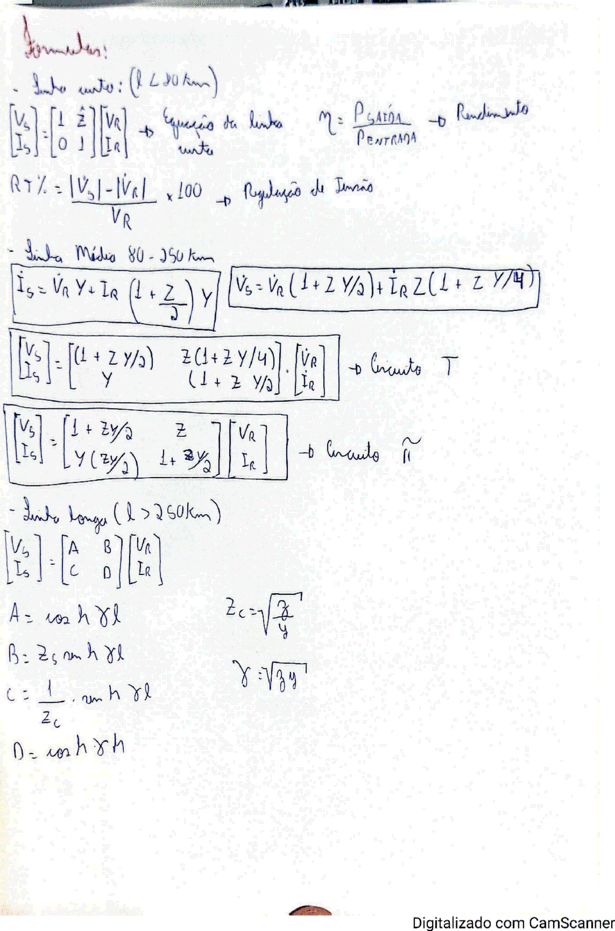 Formulas:
- Linha curta: (l < 80 km)
[VS; IS] = [1 Ẑ; 0 1] [VR; IR] → Equação da linha curta η = PSAÍDA/PENTRADA → Rendimento
RT% = |V̇S| - |V̇R| / VR × 100 → Regulação de Tensão
- Linha Média 80 - 250 km
İS = V̇R Y + IR (1 + Z/2) Y V̇S = V̇R (1 + Z Y/2) + İR Z (1 + Z Y/4)
[V̇S; İS] = [(1 + Z Y/2) Z(1 + Z Y/4); Y (1 + Z Y/2)] · [V̇R; İR] → Circuito T
[VS; IS] = [1 + ZY/2 Z; Y (ZY/2) 1 + ZY/2] [VR; IR] → Circuito π
- Linha longa (l > 250 km)
[VS; IS] = [A B; C D] [VR; IR]
A = cos h γ l ZC = √(z/y)
B = ZS sen h γ l γ = √(zy)
C = 1/ZC . sen h γ l
D = cos h γ h
Digitalizado com CamScanner